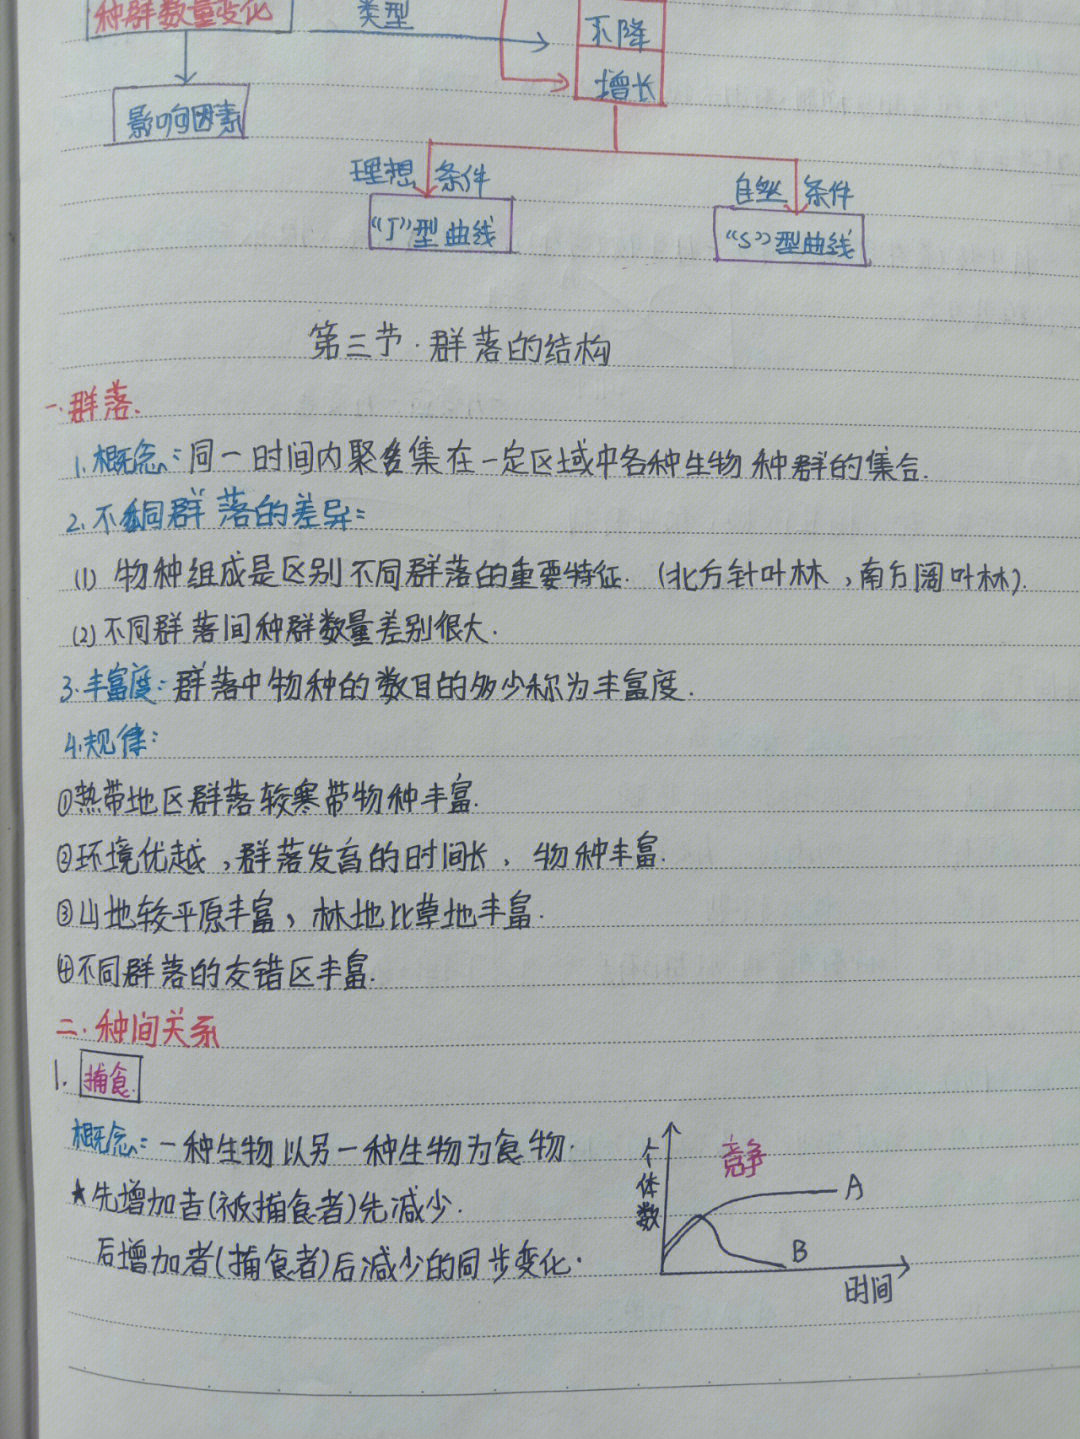 种群数量变化 类型
下降
增长
影响因素
理想 条件
自然 条件
“J”型曲线
“S”型曲线
第三节·群落的结构
一.群落.
1.概念:同一时间内聚集在一定区域中各种生物种群的集合.
2.不同群落的差异:
(1) 物种组成是区别不同群落的重要特征.(北方针叶林,南方阔叶林).
(2)不同群落间种群数量差别很大.
3.丰富度:群落中物种的数目的多少称为丰富度.
4.规律:
①热带地区群落较寒带物种丰富.
②环境优越,群落发育的时间长,物种丰富.
③山地较平原丰富,林地比草地丰富.
④不同群落的交错区丰富.
二.种间关系
1. 捕食.
概念:一种生物以另一种生物为食物.
★先增加者(被捕食者)先减少.
后增加者(捕食者)后减少的同步变化.
个体数
竞争
A
B
时间